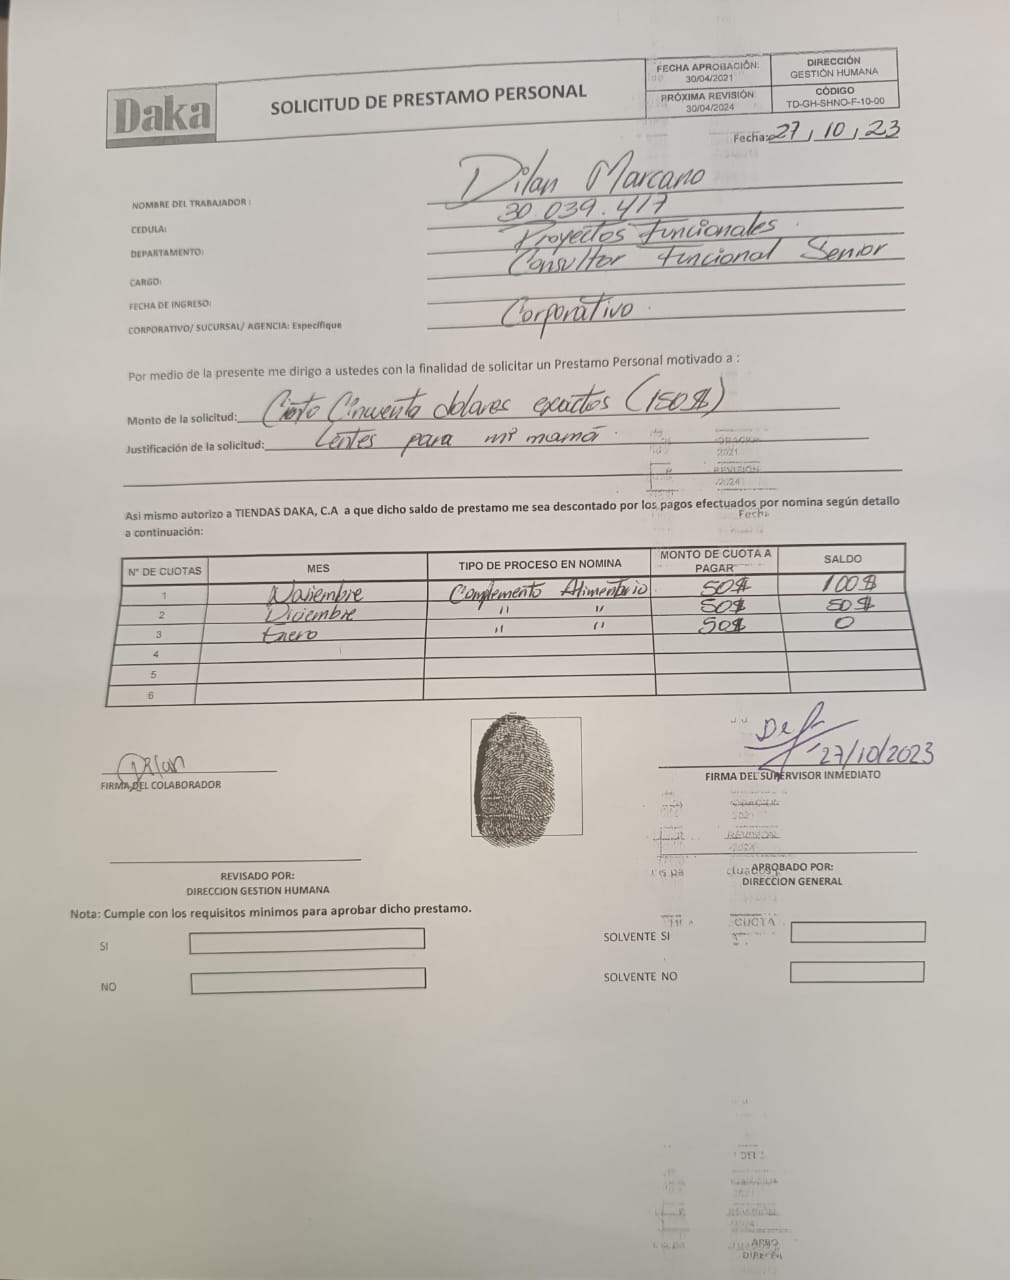 Daka
SOLICITUD DE PRESTAMO PERSONAL
FECHA APROBACIÓN:
30/04/2021
DIRECCIÓN
GESTIÓN HUMANA
PRÓXIMA REVISIÓN
30/04/2024
CÓDIGO
TD-GH-SHNO-F-10-00
Fecha: 27 / 10 / 23
NOMBRE DEL TRABAJADOR: Dilan Marcano
CEDULA: 30.039.417
DEPARTAMENTO: Proyectos Funcionales
CARGO: Consultor Funcional Senior
FECHA DE INGRESO:
CORPORATIVO/ SUCURSAL/ AGENCIA: Especifique Corporativo.
Por medio de la presente me dirigo a ustedes con la finalidad de solicitar un Prestamo Personal motivado a :
Monto de la solicitud: Ciento Cinventa dolares exactos (150$)
Justificación de la solicitud: Lentes para mi mamá.
Asi mismo autorizo a TIENDAS DAKA, C.A a que dicho saldo de prestamo me sea descontado por los pagos efectuados por nomina según detallo
a continuación:
N° DE CUOTAS MES TIPO DE PROCESO EN NOMINA MONTO DE CUOTA A PAGAR SALDO
1 Noviembre Complemento Alimentario 50$ 100$
2 Diciembre " " 50$ 50$
3 Enero " " 50$ 0
4
5
6
Dilan
FIRMA DEL COLABORADOR
27/10/2023
FIRMA DEL SUPERVISOR INMEDIATO
REVISADO POR:
DIRECCION GESTION HUMANA
APROBADO POR:
DIRECCION GENERAL
Nota: Cumple con los requisitos minimos para aprobar dicho prestamo.
SI
SOLVENTE SI
NO
SOLVENTE NO